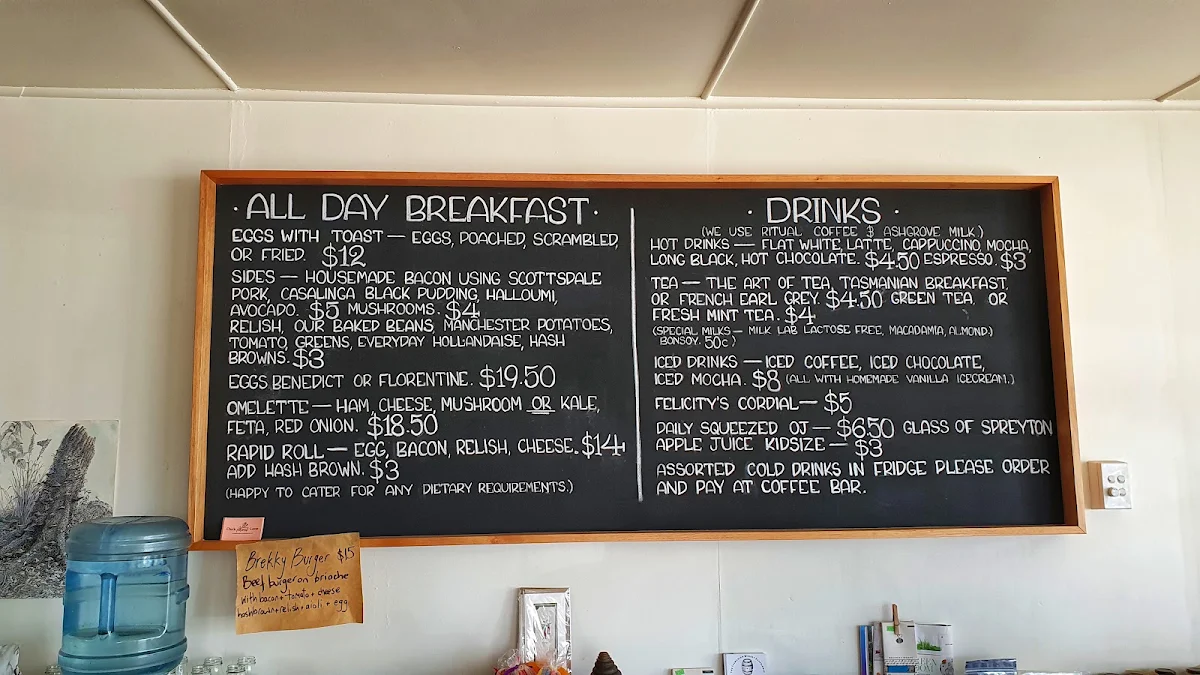 · ALL DAY BREAKFAST ·
EGGS WITH TOAST — EGGS, POACHED, SCRAMBLED,
OR FRIED. $12
SIDES — HOUSEMADE BACON USING SCOTTSDALE
PORK, CASALINGA BLACK PUDDING, HALLOUMI,
AVOCADO. $5 MUSHROOMS. $4
RELISH, OUR BAKED BEANS, MANCHESTER POTATOES,
TOMATO, GREENS, EVERYDAY HOLLANDAISE, HASH
BROWNS. $3
EGGS BENEDICT OR FLORENTINE. $19.50
OMELETTE — HAM, CHEESE, MUSHROOM OR KALE,
FETA, RED ONION. $18.50
RAPID ROLL — EGG, BACON, RELISH, CHEESE. $14
ADD HASH BROWN. $3
(HAPPY TO CATER FOR ANY DIETARY REQUIREMENTS.)
· DRINKS ·
(WE USE RITUAL COFFEE & ASHGROVE MILK.)
HOT DRINKS — FLAT WHITE, LATTE, CAPPUCCINO, MOCHA,
LONG BLACK, HOT CHOCOLATE. $4.50 ESPRESSO. $3
TEA — THE ART OF TEA, TASMANIAN BREAKFAST,
OR FRENCH EARL GREY. $4.50 GREEN TEA, OR
FRESH MINT TEA. $4
(SPECIAL MILKS — MILK LAB LACTOSE FREE, MACADAMIA, ALMOND.)
BONSOY. 50c)
ICED DRINKS — ICED COFFEE, ICED CHOCOLATE,
ICED MOCHA. $8 (ALL WITH HOMEMADE VANILLA ICECREAM.)
FELICITY'S CORDIAL — $5
DAILY SQUEEZED OJ — $6.50 GLASS OF SPREYTON
APPLE JUICE KIDSIZE — $3
ASSORTED COLD DRINKS IN FRIDGE PLEASE ORDER
AND PAY AT COFFEE BAR.
Brekky Burger $15
Beef burger on brioche
with bacon + tomato + cheese
hashbrown + relish + aioli + egg